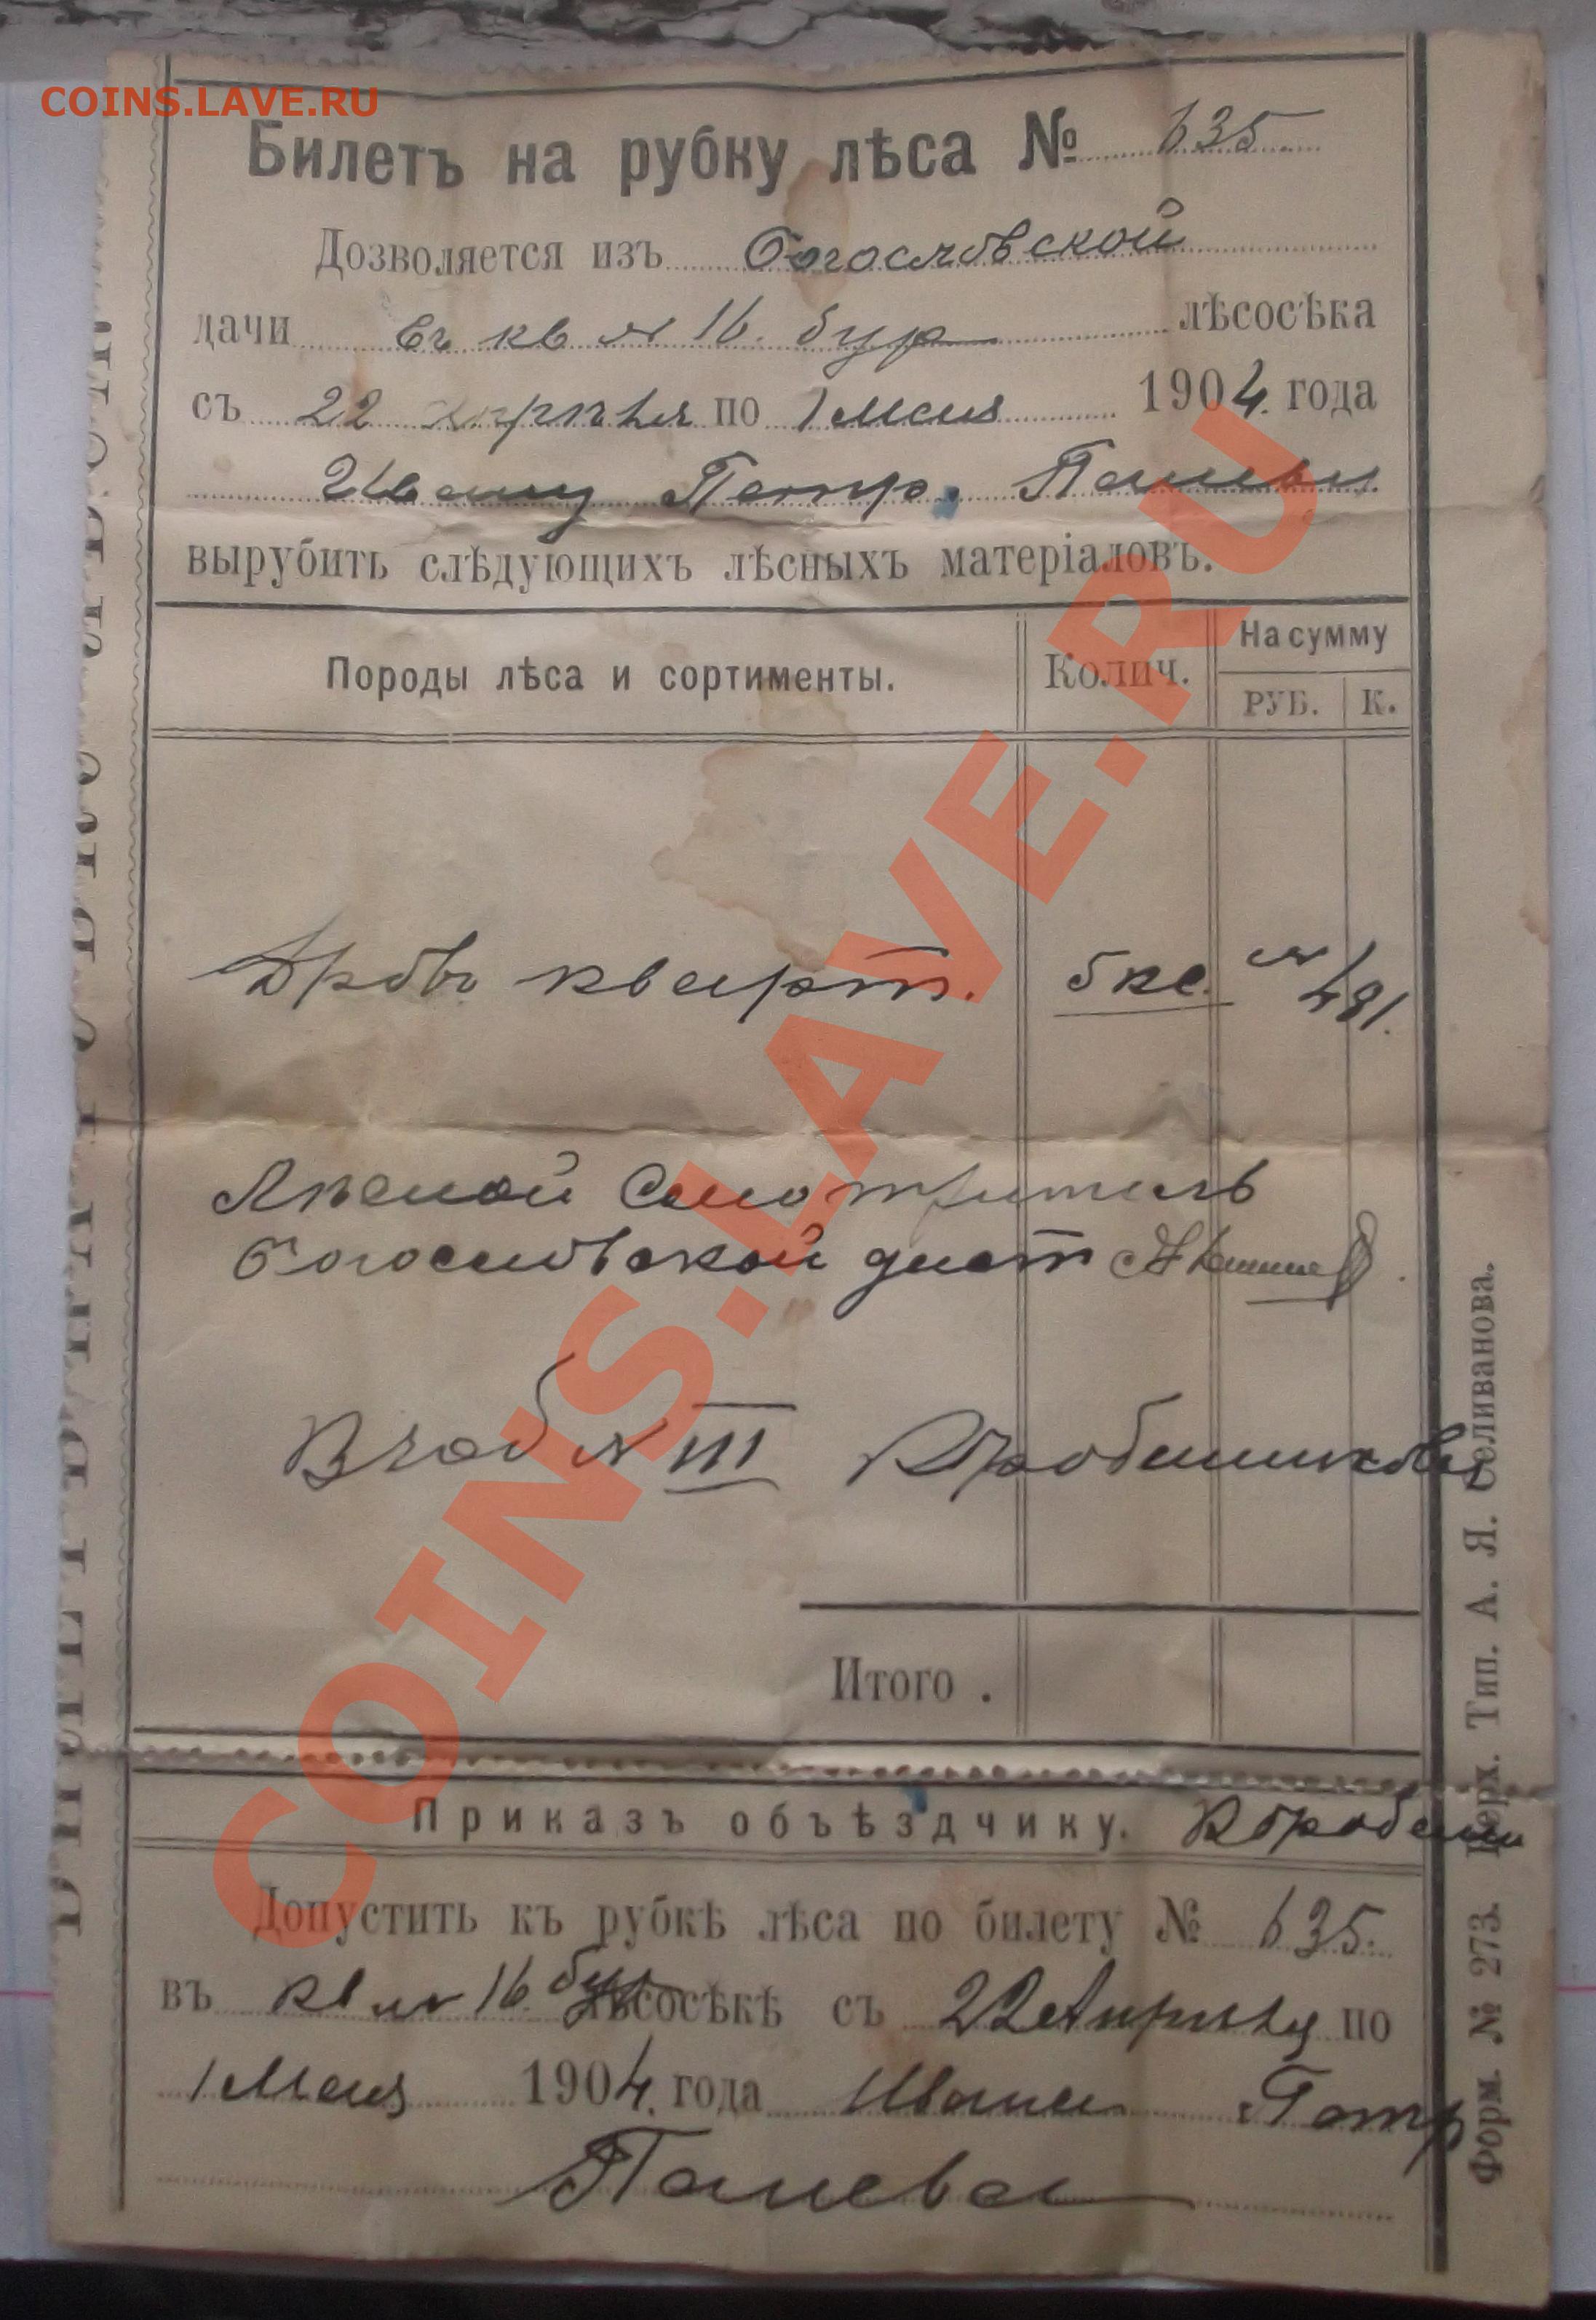 COINS.LAVE.RU
Билетъ на рубку лѣса № 635
Дозволяется изъ Богословской
дачи въ кв № 16. бур лѣсосѣка
съ 22 Апрѣля по 1 Мая 1904. года
Ивану Петр.
вырубить слѣдующихъ лѣсныхъ матеріаловъ.
Породы лѣса и сортименты. Колич. На сумму
РУБ. К.
Дровъ кварт. 5 кс. № 481.
Лѣсной Смотритель
Богословской дист
№ III
Итого .
Приказъ объѣздчику.
Допустить къ рубкѣ лѣса по билету № 635.
въ кв № 16. бур лѣсосѣкѣ съ 22 Апрѣля по
1 Мая 1904. года Ивана Петр
Форм. № 273. Верх. Тип. А. Я. Селиванова.
COINS.LAVE.RU